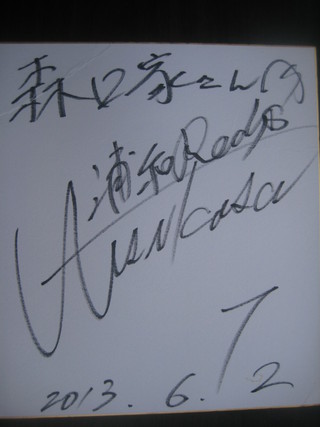 森口家さんへ
浦和Reds
Tsukasa
7
2013.6.2